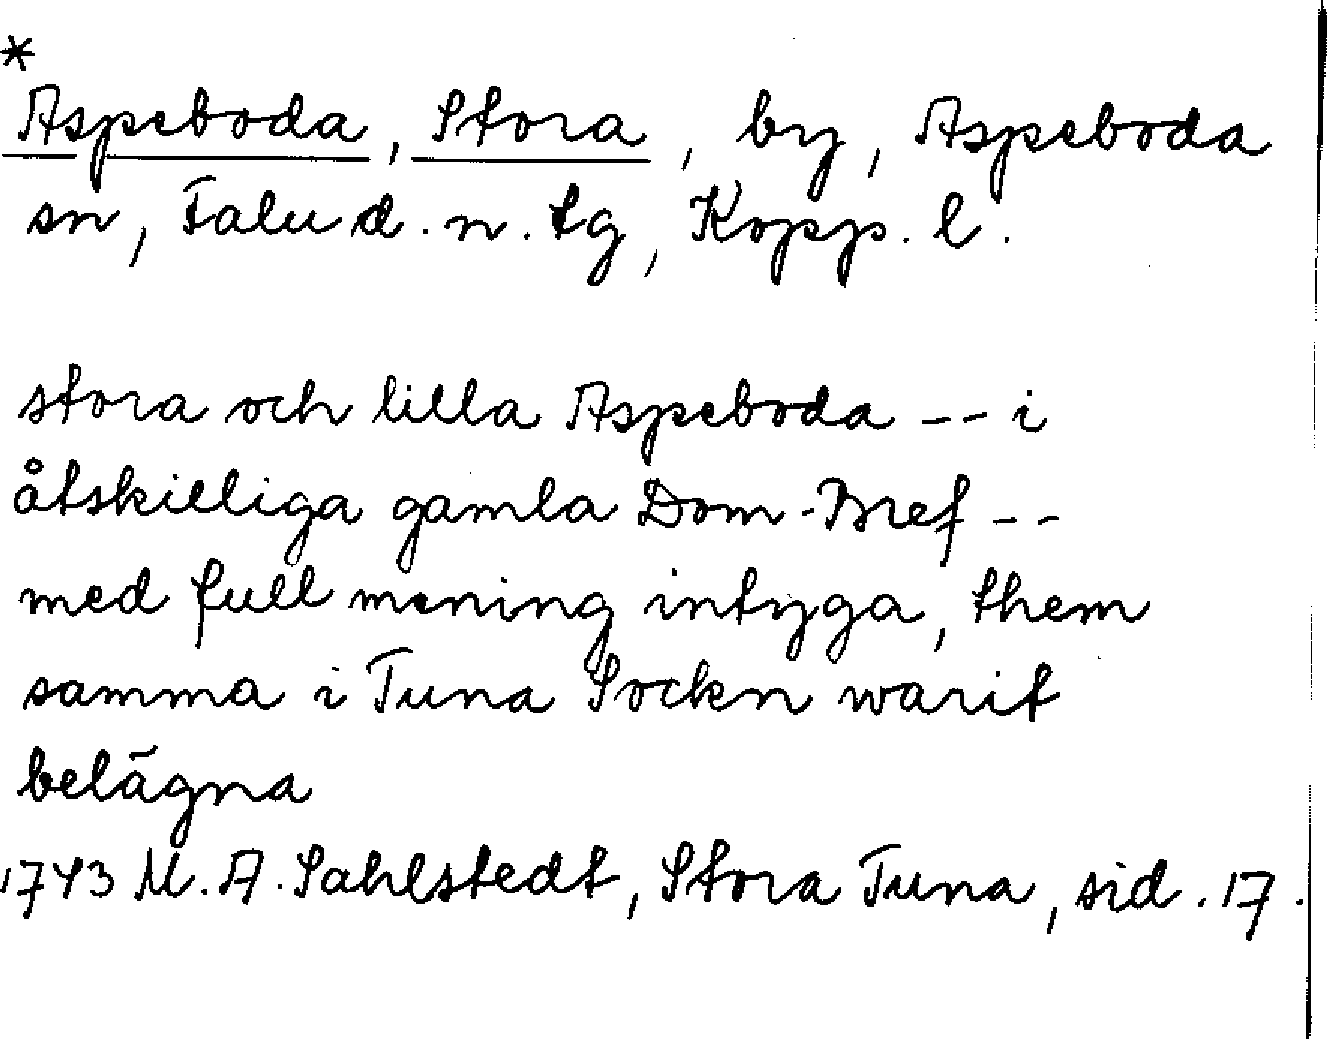 *
Aspeboda, Stora, by, Aspeboda
sn, Falu d. n. tg, Kopp. l.
stora och lilla Aspeboda -- i
åtskilliga gamla Dom-Bref --
med full mening intyga, them
samma i Tuna Sockn warit
belägna
1743 M. A. Sahlstedt, Stora Tuna, sid. 17.